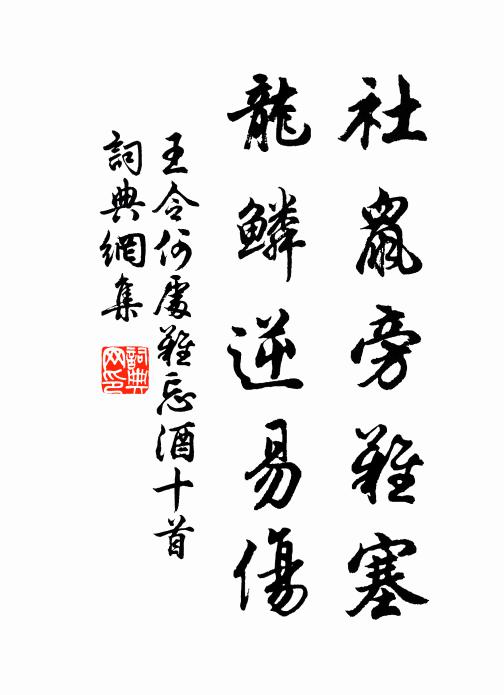 社鼠旁難塞
龍鱗逆易傷
王令何處難忘酒十首
詞典網集
詞典網印